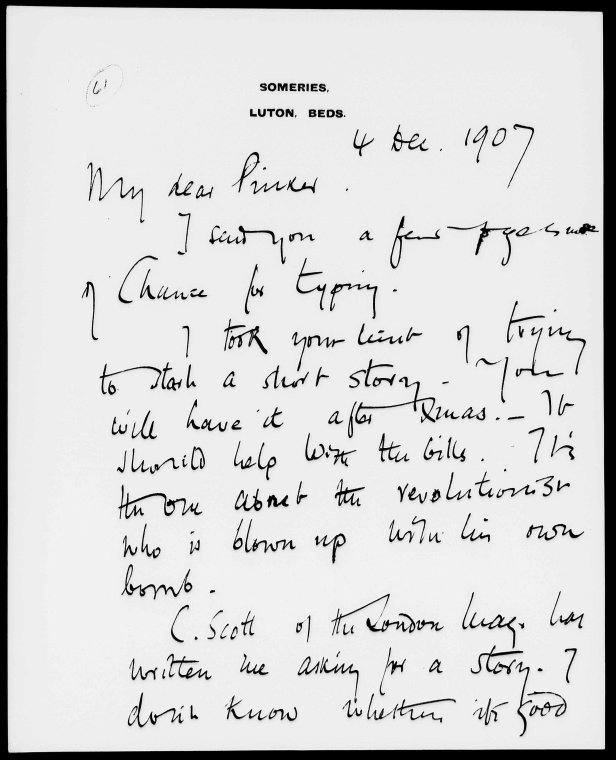 61
SOMERIES,
LUTON, BEDS.
4 Dec. 1907
My dear Pinker.
I send you a few pages more
of Chance for typing.
I took your hint of trying
to start a short story - You
will have it after Xmas. - It
should help with the bills. It's
the one about the revolutionist
who is blown up with his own
bomb.
C. Scott of the London Mag. has
written me asking for a story. I
don't know whether it's good